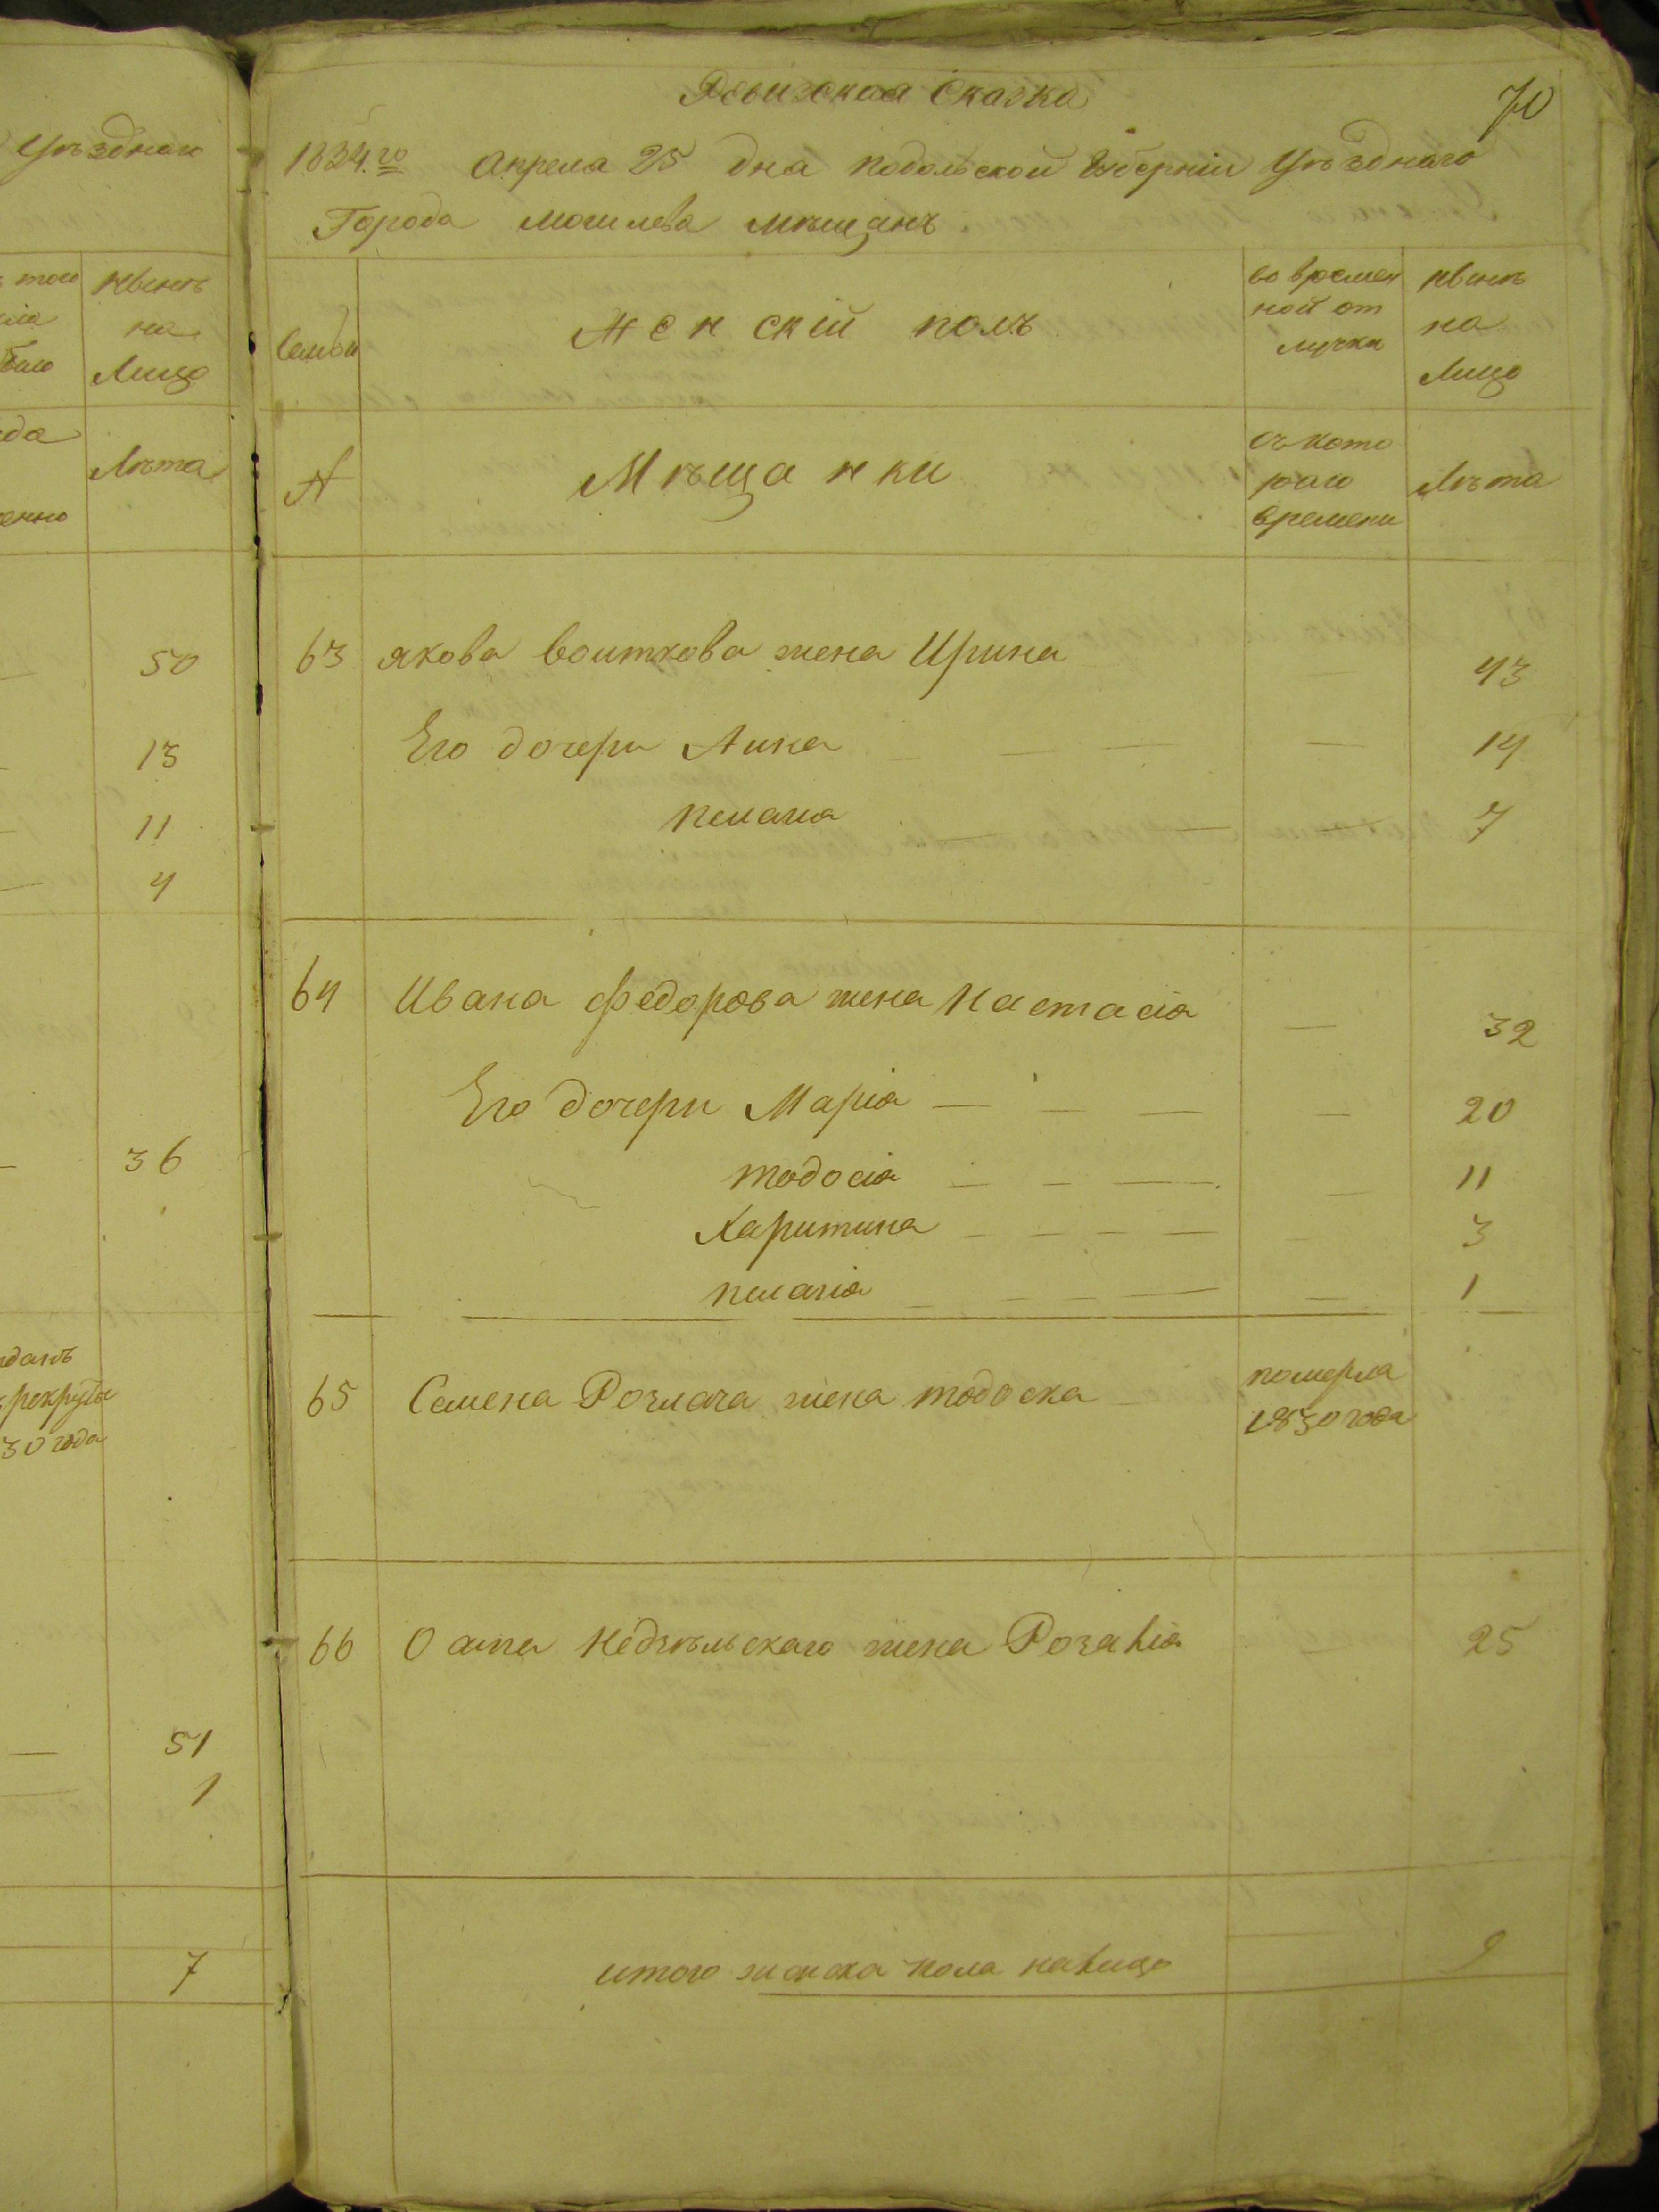 уѣзднаго
того
нынѣ
на
Лицо
Лѣта
50
13
11
4
36
рекруты
30 года
51
1
7
Ревизская Сказка
70
1834.го Апреля 25 дня Подольской Губерніи Уѣзднаго
Города Могилева мѣщанъ
Семьи
Женскій полъ
во времен
ной от
лучки
нынѣ
на
Лицо
№
Мѣщанки
съ кото
раго
времени
Лѣта
63 Якова Воиткова жена Ирина — 43
Его дочери Анна — — — 14
пелагія — — — 7
64 Ивана Федорова жена Настасія — 32
Его дочери Марія — — — — 20
тодосія — — — — 11
Харитина — — — — — 3
пелагія — — — — — 1
65 Семена Розлача жена тодоска
померла
1830 года
66 Осипа Недзѣльскаго жена Розалія — 25
итого женска пола налицо 9